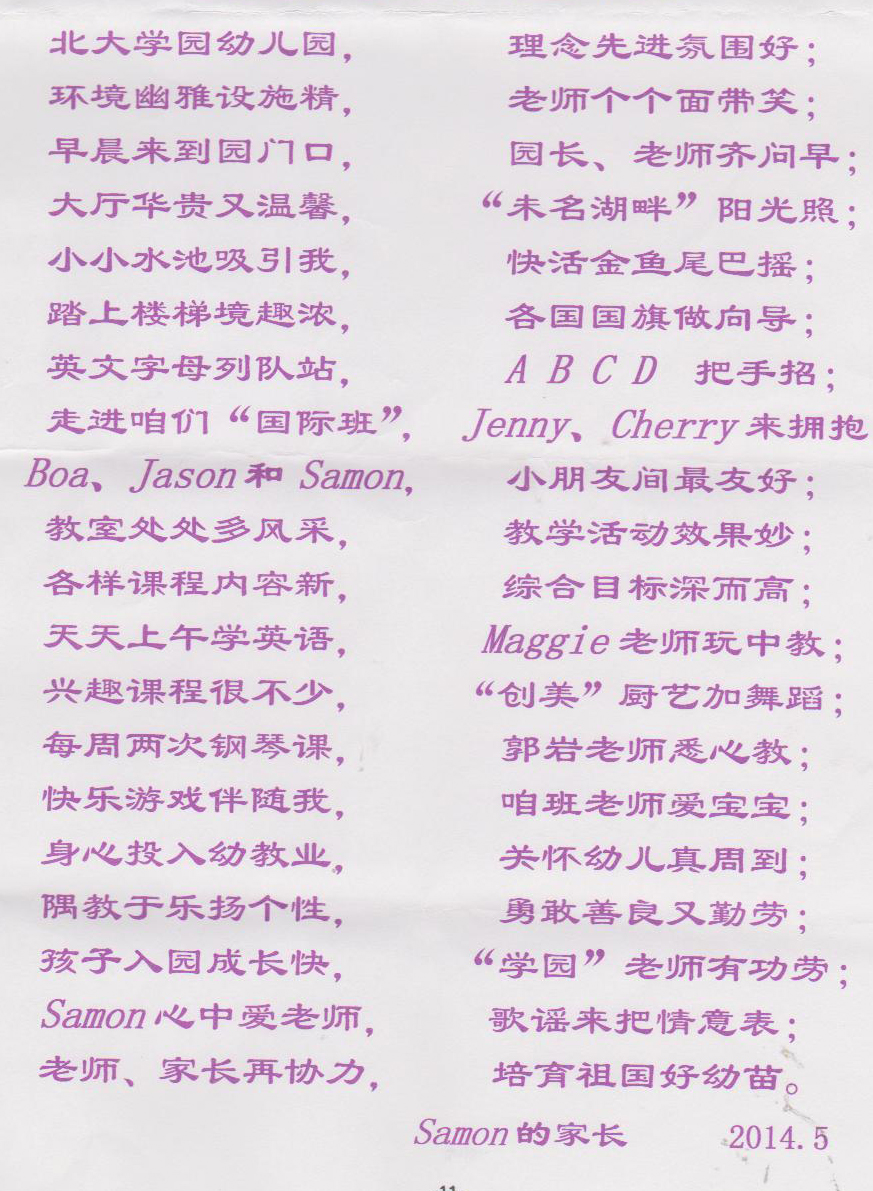 北大学园幼儿园， 理念先进氛围好；
环境幽雅设施精， 老师个个面带笑；
早晨来到园门口， 园长、老师齐问早；
大厅华贵又温馨， “未名湖畔”阳光照；
小小水池吸引我， 快活金鱼尾巴摇；
踏上楼梯境趣浓， 各国国旗做向导；
英文字母列队站， A B C D 把手招；
走进咱们“国际班”， Jenny、Cherry来拥抱
Boa、Jason和 Samon， 小朋友间最友好；
教室处处多风采， 教学活动效果妙；
各样课程内容新， 综合目标深而高；
天天上午学英语， Maggie老师玩中教；
兴趣课程很不少， “创美”厨艺加舞蹈；
每周两次钢琴课， 郭岩老师悉心教；
快乐游戏伴随我， 咱班老师爱宝宝；
身心投入幼教业， 关怀幼儿真周到；
隅教于乐扬个性， 勇敢善良又勤劳；
孩子入园成长快， “学园”老师有功劳；
Samon心中爱老师， 歌谣来把情意表；
老师、家长再协力， 培育祖国好幼苗。
Samon的家长 2014.5
11